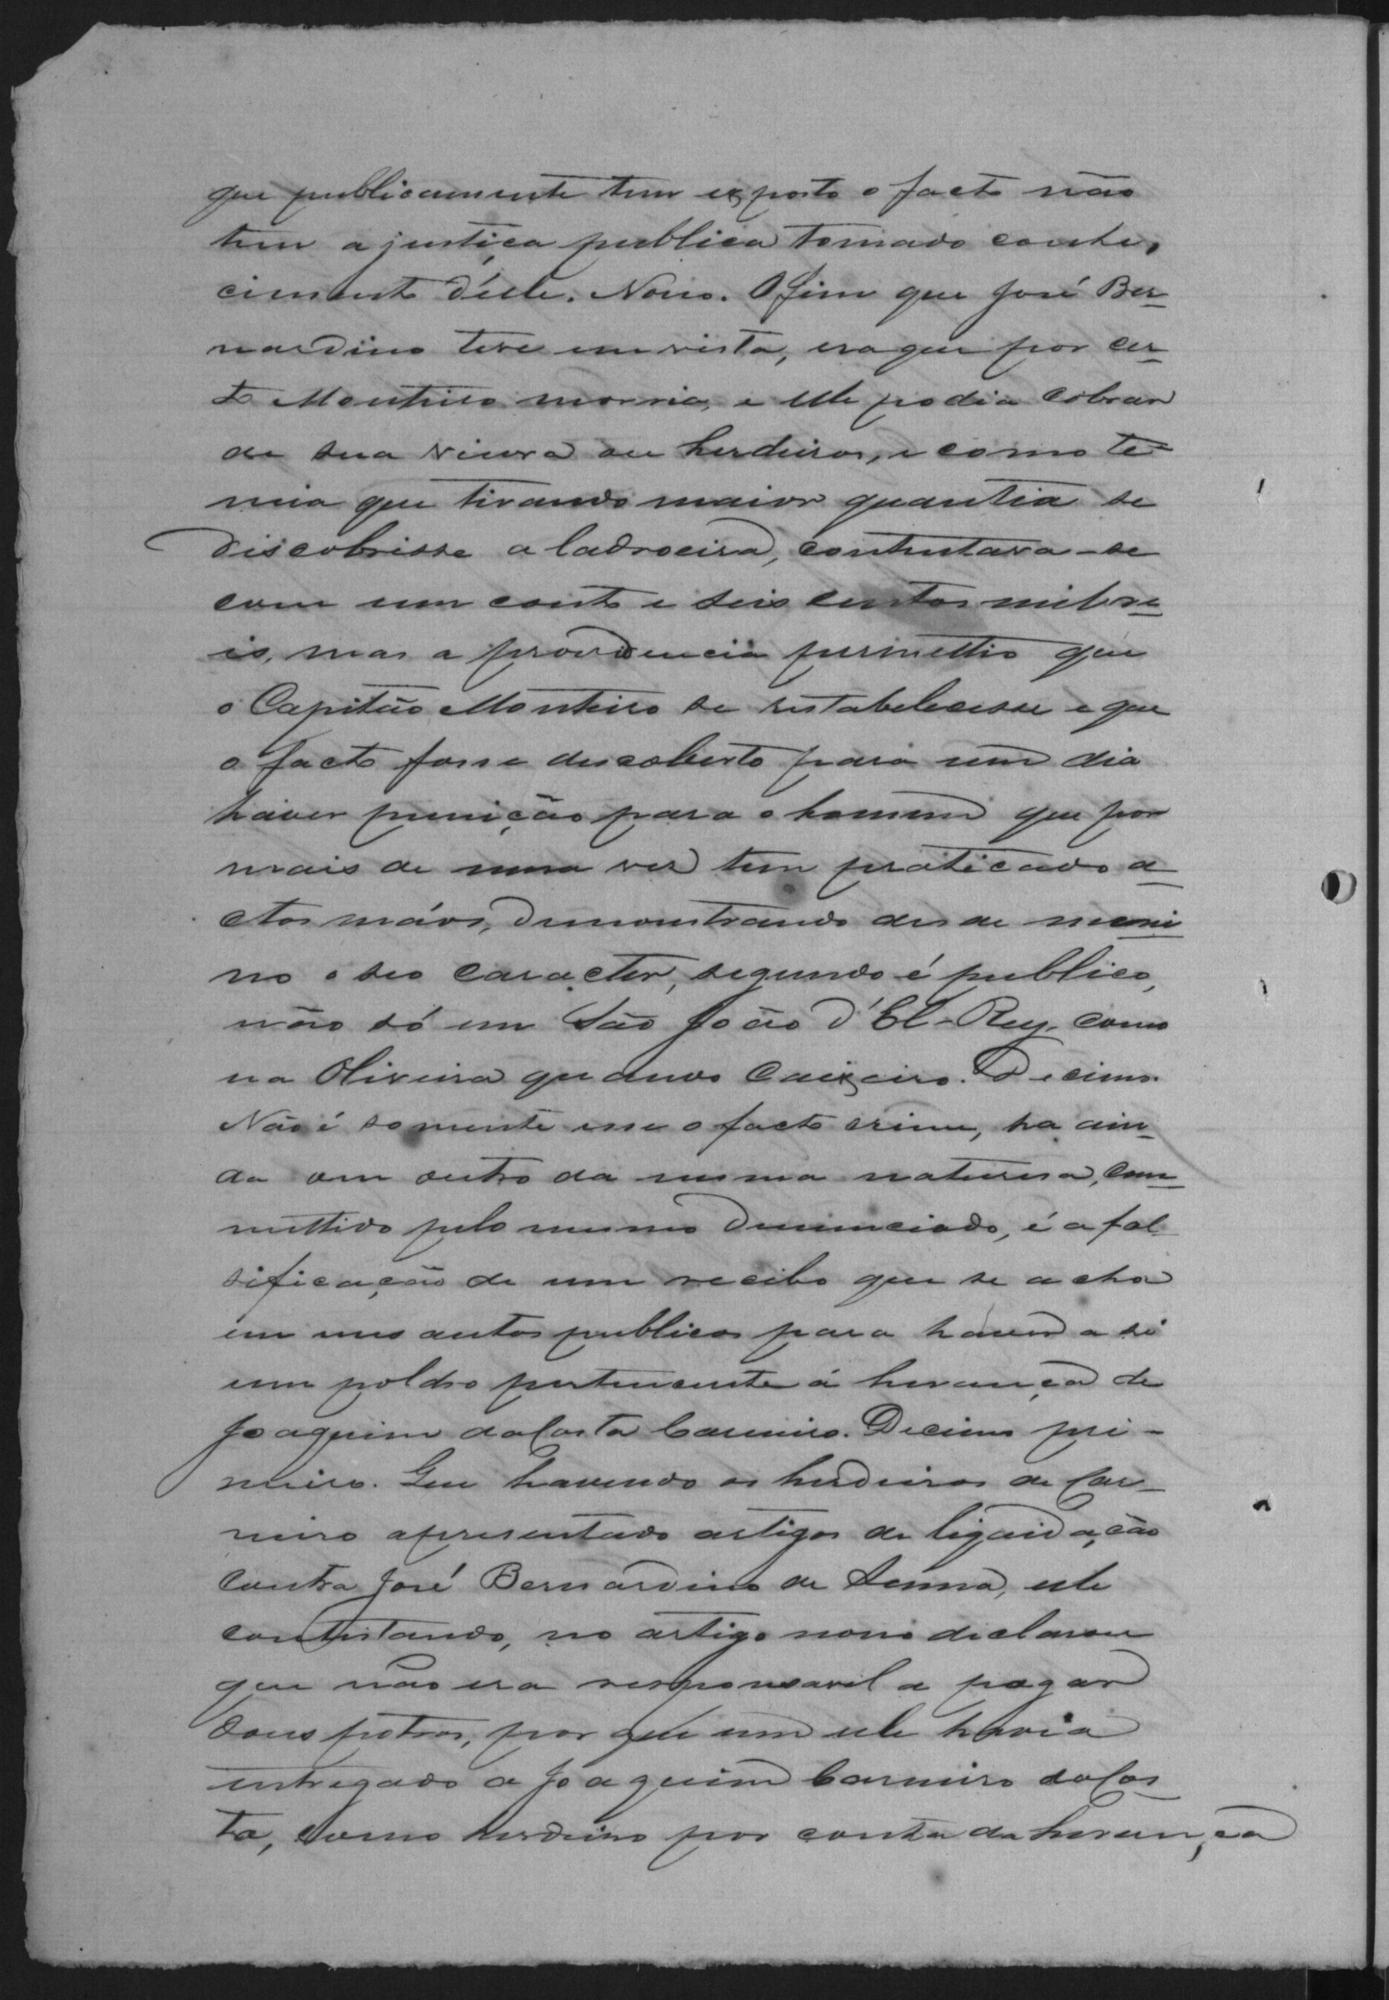 que publicamente tem exposto o facto não
tem a justiça publica tomado conhe,
cimento d'elle. Nono. O fim que José Ber-
nardino teve em vista, era que por cer-
to Monteiro morria, e elle podia cobrar
de sua viuva ou herdeiros, e como te-
mia que tirando maior quantia se
discobrisse a ladroeira, contentava-se
com um conto e seis centos mil re-
is, mas a providencia permettio que
o Capitão Monteiro se restabelecesse e que
o facto fosse descoberto para um dia
haver punição para o homem que por
mais de uma vez tem praticado a-
ctos máos, demonstrando des de meni-
no o seo caracter, segundo é publico,
não só em São João d'El-Rey, como
na Oliveira quando Caixeiro. Decimo.
Não é somente esse o facto crime, ha ain-
da um outro da mesma naturesa, com-
mettido pelo mesmo denunciado, é a fal-
sificação de um recibo que se acha
em uns autos publicos para haver a si
um poldro pertencente á herança de
Joaquim da Costa Carneiro. Decimo pri-
meiro. Que havendo os herdeiros de Car-
neiro apresentado artigos de liquidação
contra José Bernardino de Senna, elle
contestando, no artigo nono declarou
que não era responsavel a pagar
dous potros, por que um elle havia
entregado a Joaquim Carneiro da Cos-
ta, como herdeiro por conta da herança